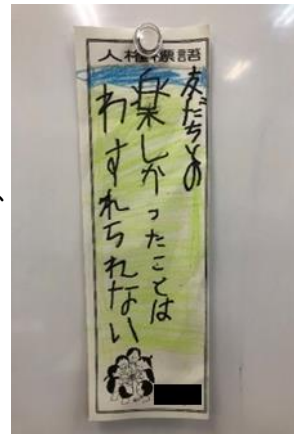 人権標語
友だちとの
楽しかったことは
わすれられない